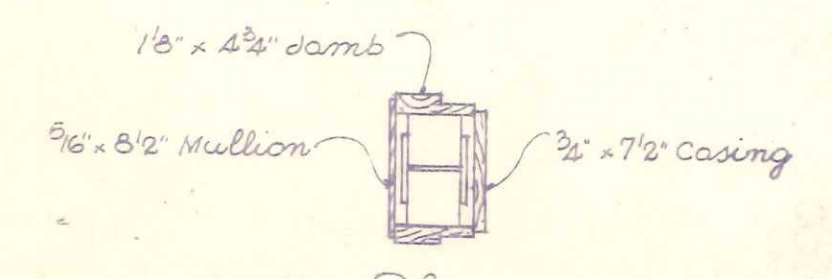 1'8" x 4 3/4" Jamb
5/16" x 8 1/2" Mullion
3/4" x 7 1/2" Casing